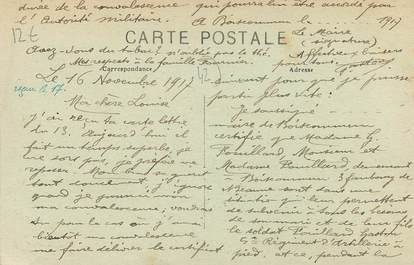 durée de la convalescence qui pourrait lui être accordée par
l'Autorité Militaire. A Boiscommun le 191
12€
Le Maire
(signature)
CARTE POSTALE
Avez-vous du tabac? n'oublie pas le thé.
Mes respects à la famille Fournier.
Affection & baisers
pour tous. Gaston
Correspondance
Adresse
Le 16 Novembre 1917
reçue le 17.
Ma chère Louise
J'ai reçu ta carte lettre
du 13. Aujourd'hui il
fait un temps superbe, je
ne sors pas, je préfère me
reposer. Mon bras
tout doucement, j'ignore
quand je pourrai
ma convalescence, voudrais
tu pour le cas où j'aurai
bientôt ma convalescence
me faire délivrer le certificat
suivant pour que je puisse
partir plus vite:
Je soussigné
maire de Boiscommun
certifie que Madame G.
Rouillard, Monsieur et
Madame Rouillard demeurant
à Boiscommun, 3 faubourg de
Beaune sont dans une
situation qui leur permettent
de subvenir à tous les besoins
de nourriture et de leur fils
le soldat Rouillard Gaston
5e Régiment d'Artillerie à
pied, et ce, pendant la